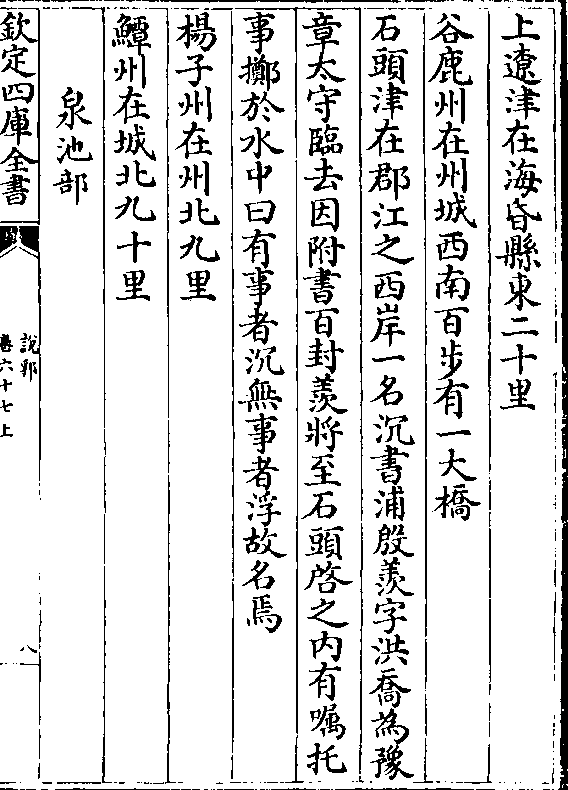 上遼津在海昏縣東二十里
谷鹿州在州城西南百步有一大橋
石頭津在郡江之西岸一名沉書浦殷羨字洪喬為豫
章太守臨去因附書百封羨將至石頭啓之内有囑托
事擲於水中曰有事者沉無事者浮故名焉
楊子州在州北九里
鱏州在城北九十里
泉池部
欽定四庫全書
說郛
卷六十七上
八